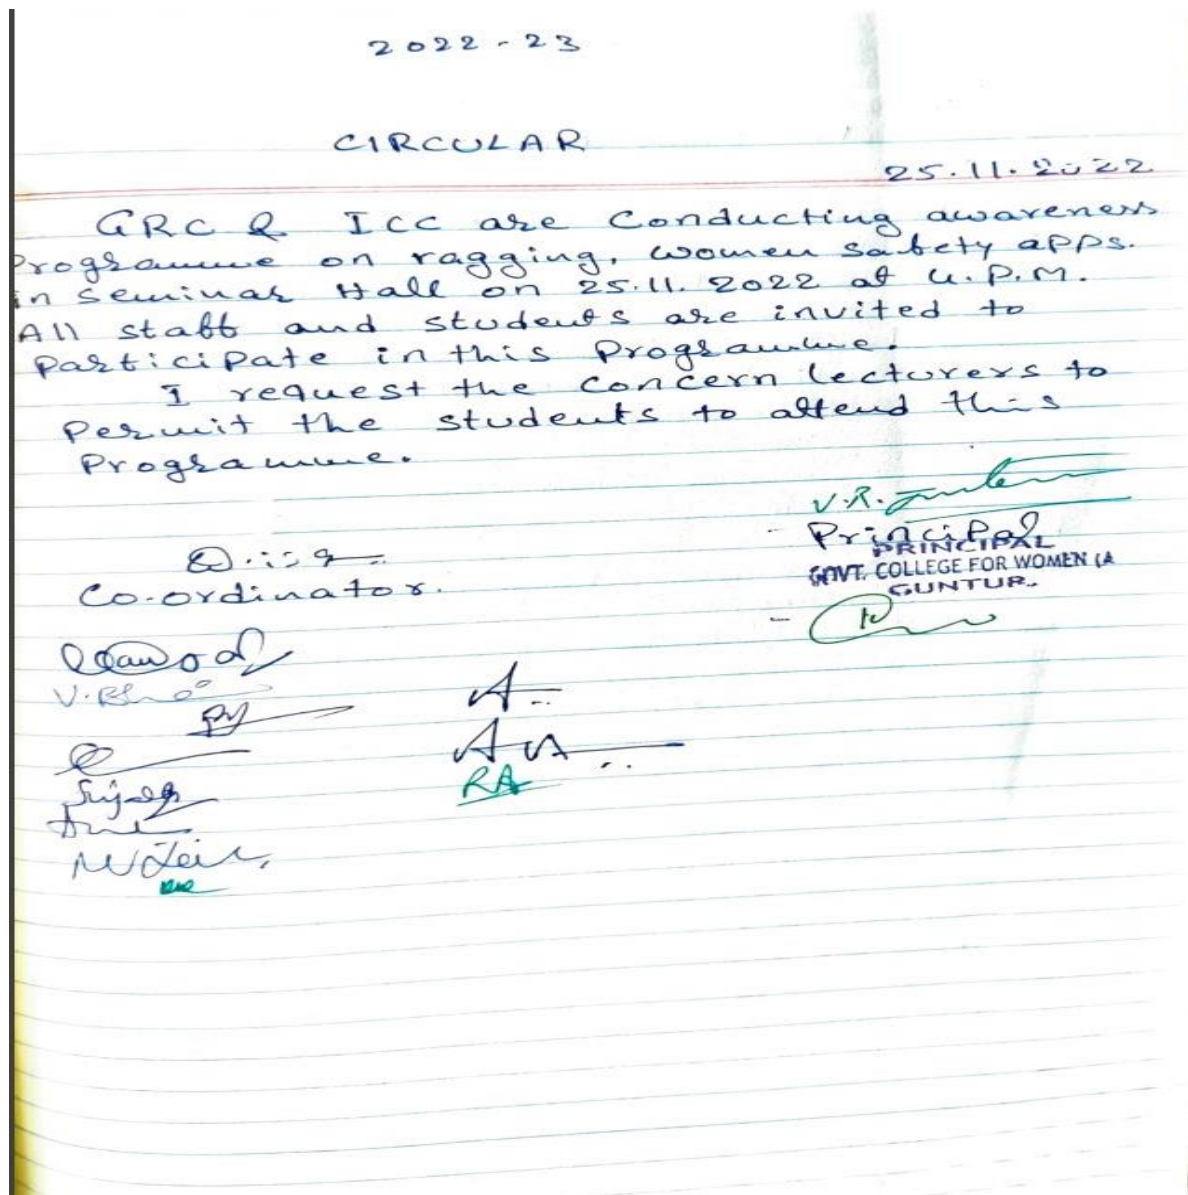 2022-23
CIRCULAR
25.11.2022
GRC & ICC are Conducting awareness
Programme on ragging, women safety apps.
in Seminar Hall on 25.11.2022 at 4.P.M.
All staff and students are invited to
Participate in this Programme.
I request the concern lecturers to
Permit the students to attend this
Programme.
V.R.
Principal
PRINCIPAL
GOVT. COLLEGE FOR WOMEN (A
GUNTUR.
Co-ordinator.
A
RA